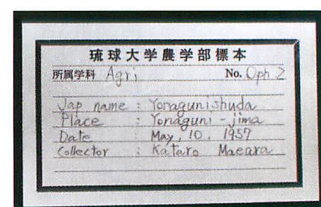 琉球大学農学部標本
所属学科 Agri No. Oph. 2
Jap name : Yonagunishuda
Place : Yonaguni-jima
Date : May, 10, 1957
Collector : Kataro Maeara